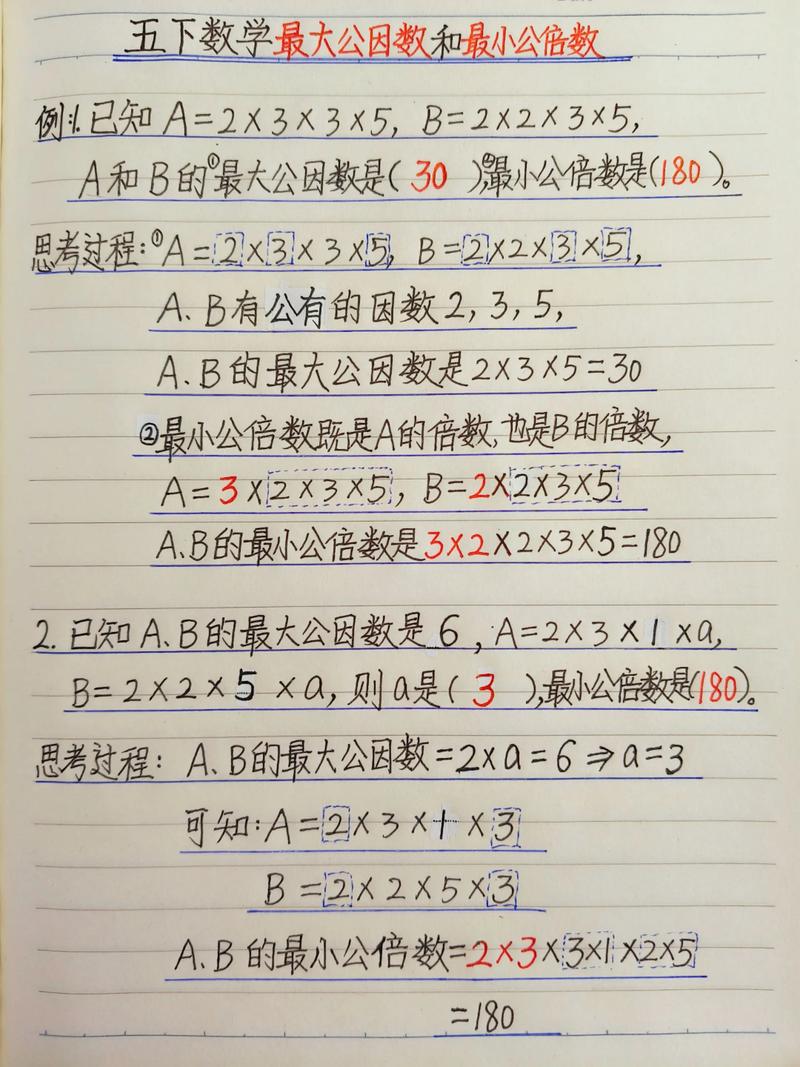 五下数学最大公因数和最小公倍数
例:1.已知A=2×3×3×5, B=2×2×3×5,
A和B的①最大公因数是(30),②最小公倍数是(180)。
思考过程:①A=2×3×3×5, B=2×2×3×5,
A.B有公有的因数2,3,5,
A.B的最大公因数是2×3×5=30
②最小公倍数既是A的倍数,也是B的倍数,
A=3×2×3×5, B=2×2×3×5
A.B的最小公倍数是3×2×2×3×5=180
2.已知A.B的最大公因数是6,A=2×3×1×a,
B=2×2×5×a,则a是(3),最小公倍数是(180)。
思考过程: A.B的最大公因数=2×a=6⇒a=3
可知:A=2×3×1×3
B=2×2×5×3
A.B的最小公倍数=2×3×3×1×2×5
=180